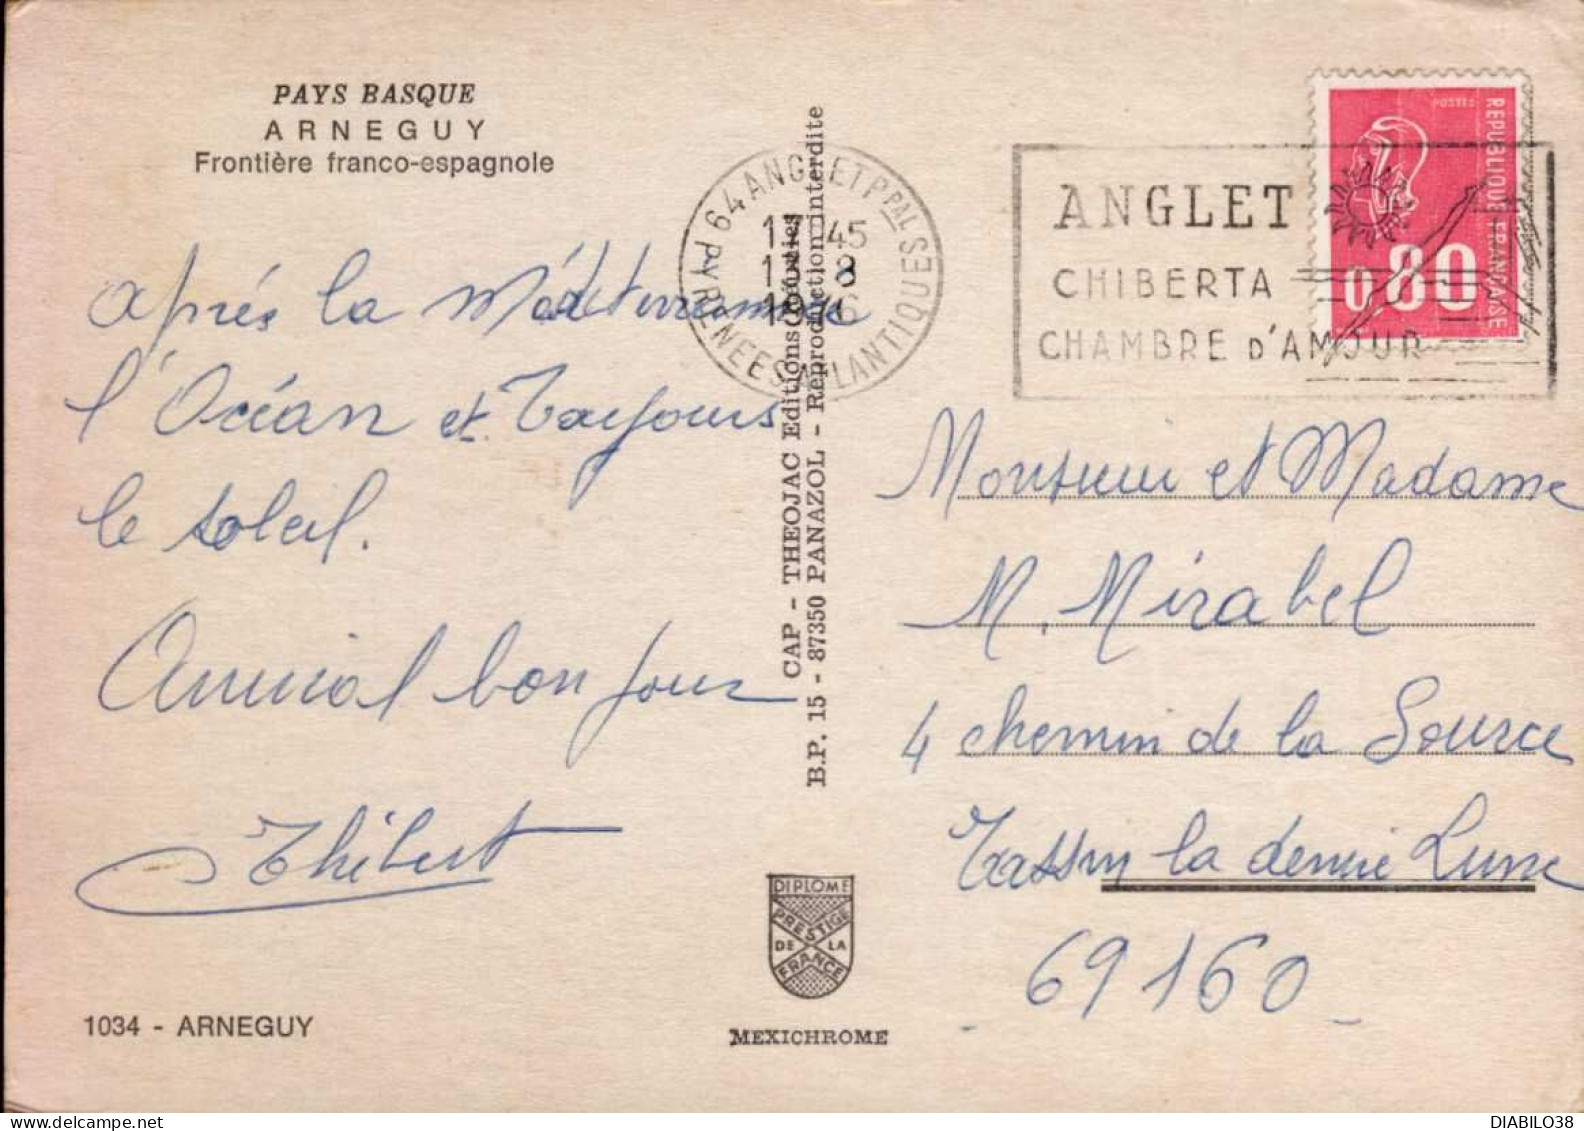 PAYS BASQUE
ARNEGUY
Frontière franco-espagnole
après la Méditerrannée
l'Océan et Toujours
le soleil.
Amical bonjour
Thibert
1034 - ARNEGUY
CAP - THEOJAC Editions
B.P. 15 - 87350 PANAZOL - Reproduction interdite
64 ANGLET PPAL
17 45
8
PYRENEES ATLANTIQUES
ANGLET
CHIBERTA
CHAMBRE D'AMOUR
POSTES
REPUBLIQUE FRANCAISE
0,80
Monsieur et Madame
M. Mirabel
4 chemin de la Source
Tassin la demie Lune
69160
DIPLOME
PRESTIGE
DE LA
FRANCE
MEXICHROME
DIABILO38